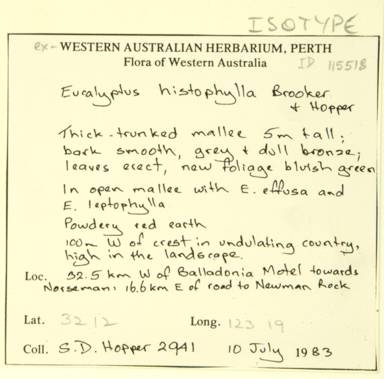 ISOTYPE
ex- WESTERN AUSTRALIAN HERBARIUM, PERTH
Flora of Western Australia ID 115518
Eucalyptus histophylla Brooker
& Hopper
Thick-trunked mallee 5m tall;
bark smooth, grey & dull bronze;
leaves erect, new foliage bluish green
In open mallee with E. effusa and
E. leptophylla
Powdery red earth
100m W of crest in undulating country,
high in the landscape.
Loc. 32.5 km W of Balladonia Motel towards
Norseman; 16.6 km E of road to Newman Rock
Lat. 32 12 Long. 123 19
Coll. S.D. Hopper 2941 10 July 1983